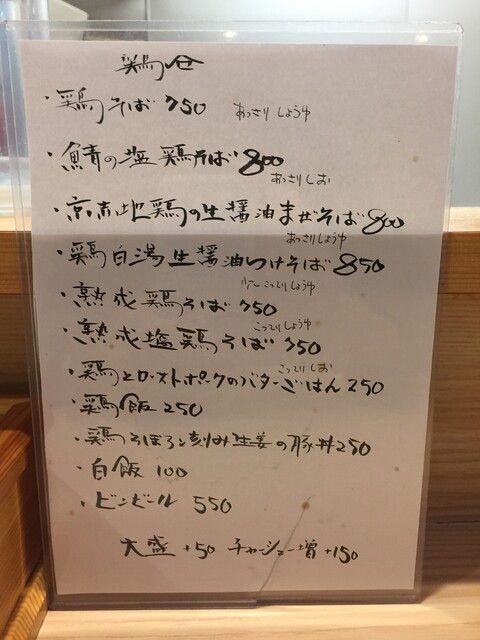 ・鶏そば 750
あっさりしょうゆ
・鯖の塩鶏そば 800
あっさりしお
・京赤地鶏の生醤油まぜそば 800
あっさりしょうゆ
・鶏白湯生醤油つけそば 850
少しこってりしょうゆ
・熟成鶏そば 750
こってりしょうゆ
・熟成塩鶏そば 750
こってりしお
・鶏とローストポークのバターごはん 250
・鶏飯 250
・鶏そぼろと刻み生姜の豚丼 250
・白飯 100
・ビンビール 550
大盛 +50 チャーシュー増 +150